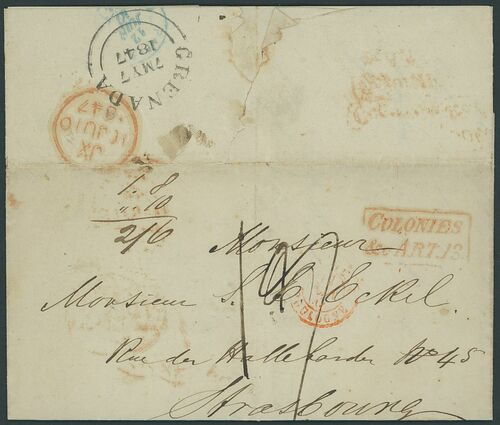 GRENADA
7MY7
1847
JX
11 JU 10
847
1.8
10
2/6
COLONIES
& ART.13.
Monsieur
Monsieur S. C. Eckel.
Rue der Hallebarder No 45
Strasbourg